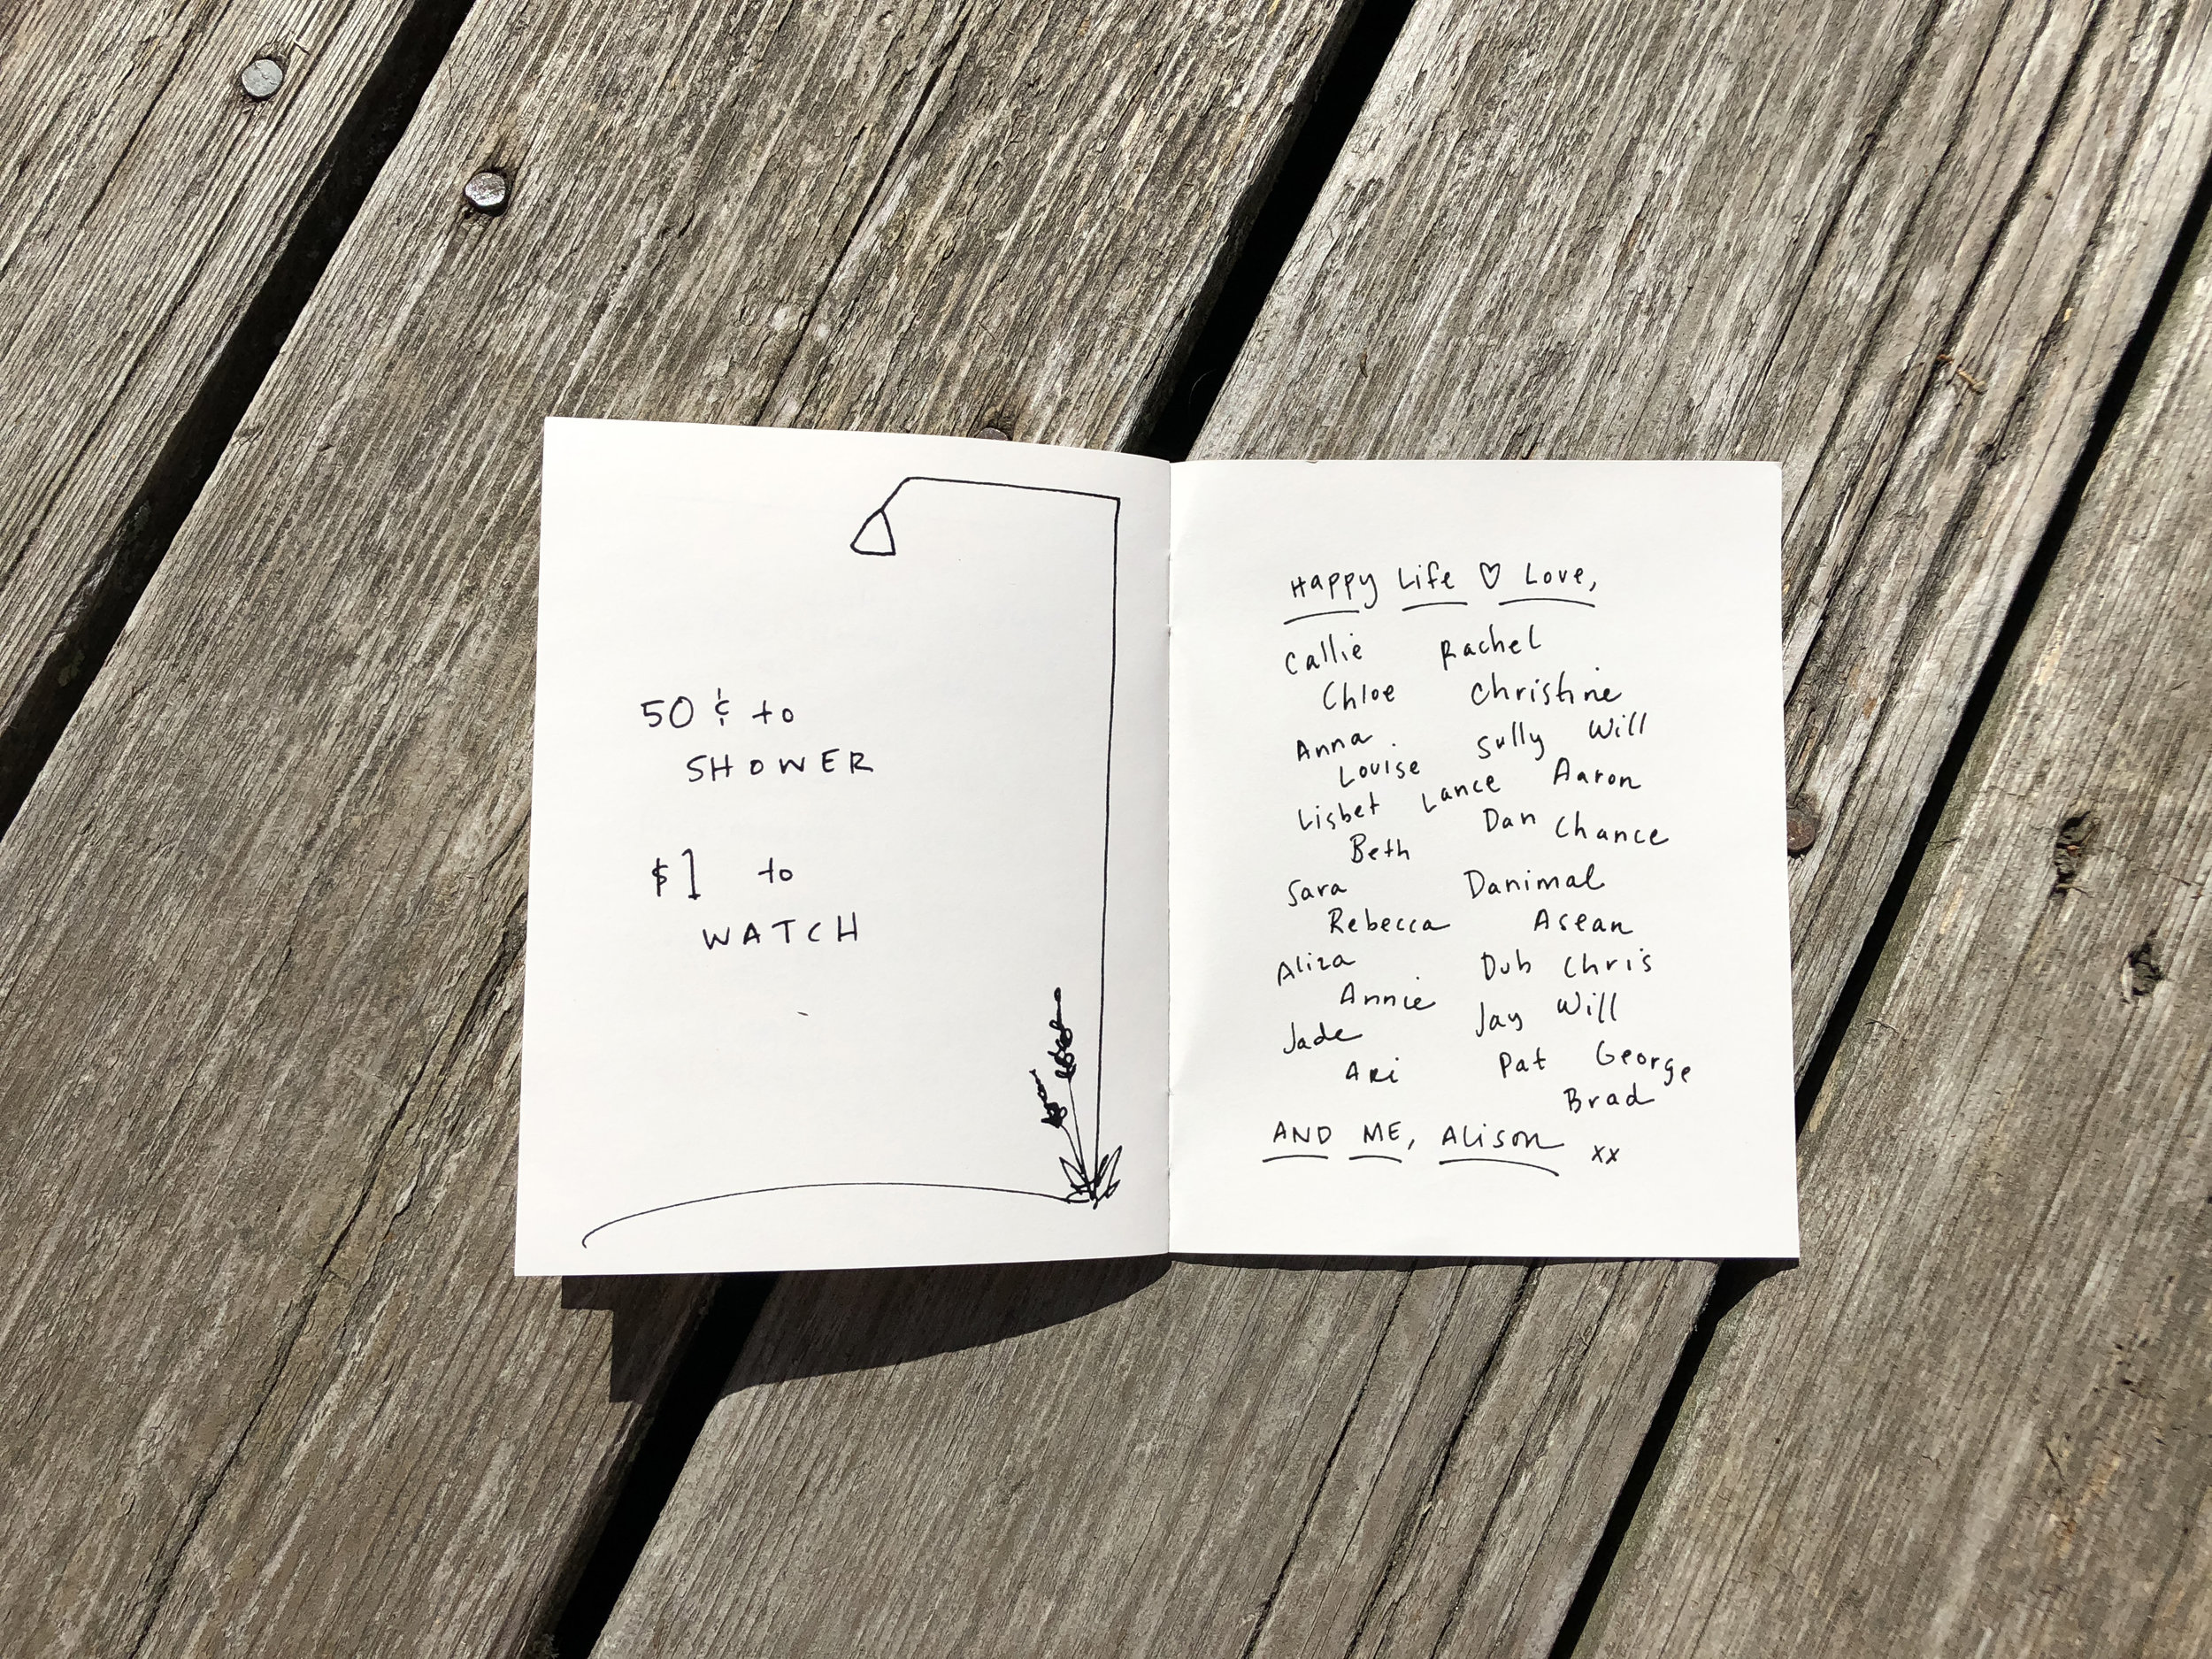 50¢ to
SHOWER
$1 to
WATCH
Happy Life ♡ Love,
Callie Rachel
Chloe Christine
Anna Sully Will
Louise Aaron
Lisbet Lance
Beth Dan Chance
Sara Danimal
Rebecca Asean
Aliza Dub Chris
Annie Jay Will
Jade
Ari Pat George
Brad
AND ME, Alison xx